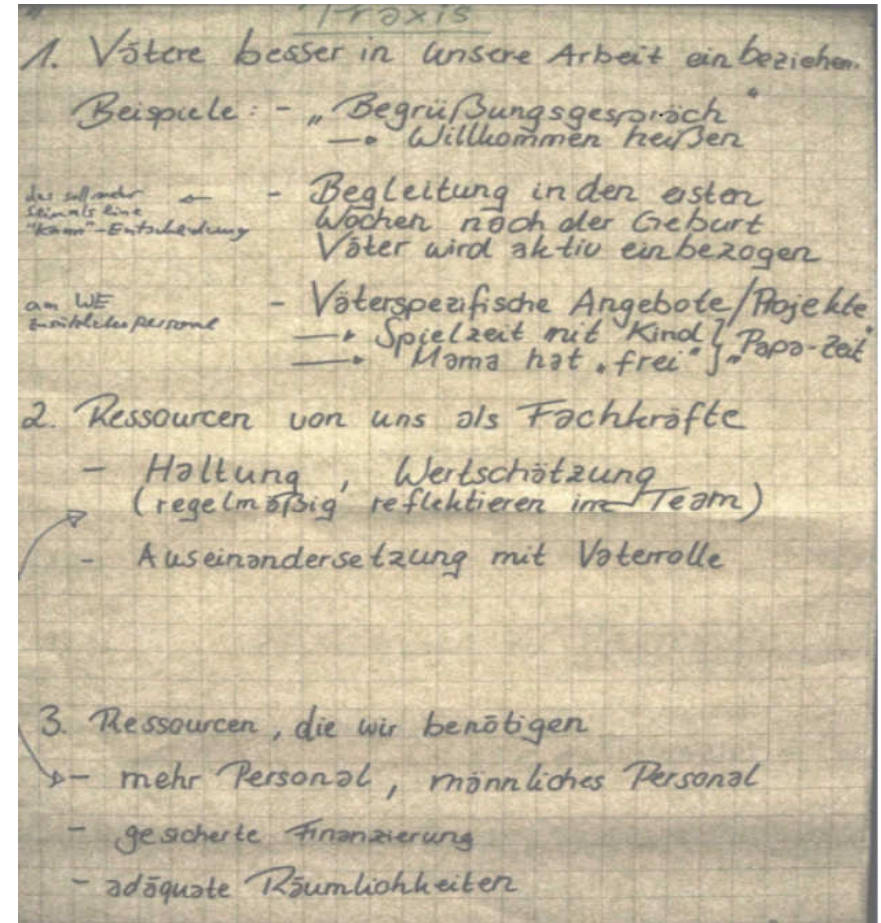 Praxis
1. Vätere besser in unsere Arbeit einbeziehen.
Beispiele: - „Begrüßungsgespräch"
→ Willkommen heißen
das soll mehr
sein als eine
"Kann"-Entscheidung
← - Begleitung in den ersten
Wochen nach der Geburt
Väter wird aktiv einbezogen
am WE
zusätzliches Personal
- Väterspezifische Angebote/Projekte
→ Spielzeit mit Kind } „Papa-Zeit"
→ Mama hat „frei"
2. Ressourcen von uns als Fachkräfte
- Haltung, Wertschätzung
(regelmäßig reflektieren im Team)
- Auseinandersetzung mit Vaterrolle
3. Ressourcen, die wir benötigen
- mehr Personal, männliches Personal
- gesicherte Finanzierung
- adäquate Räumlichkeiten